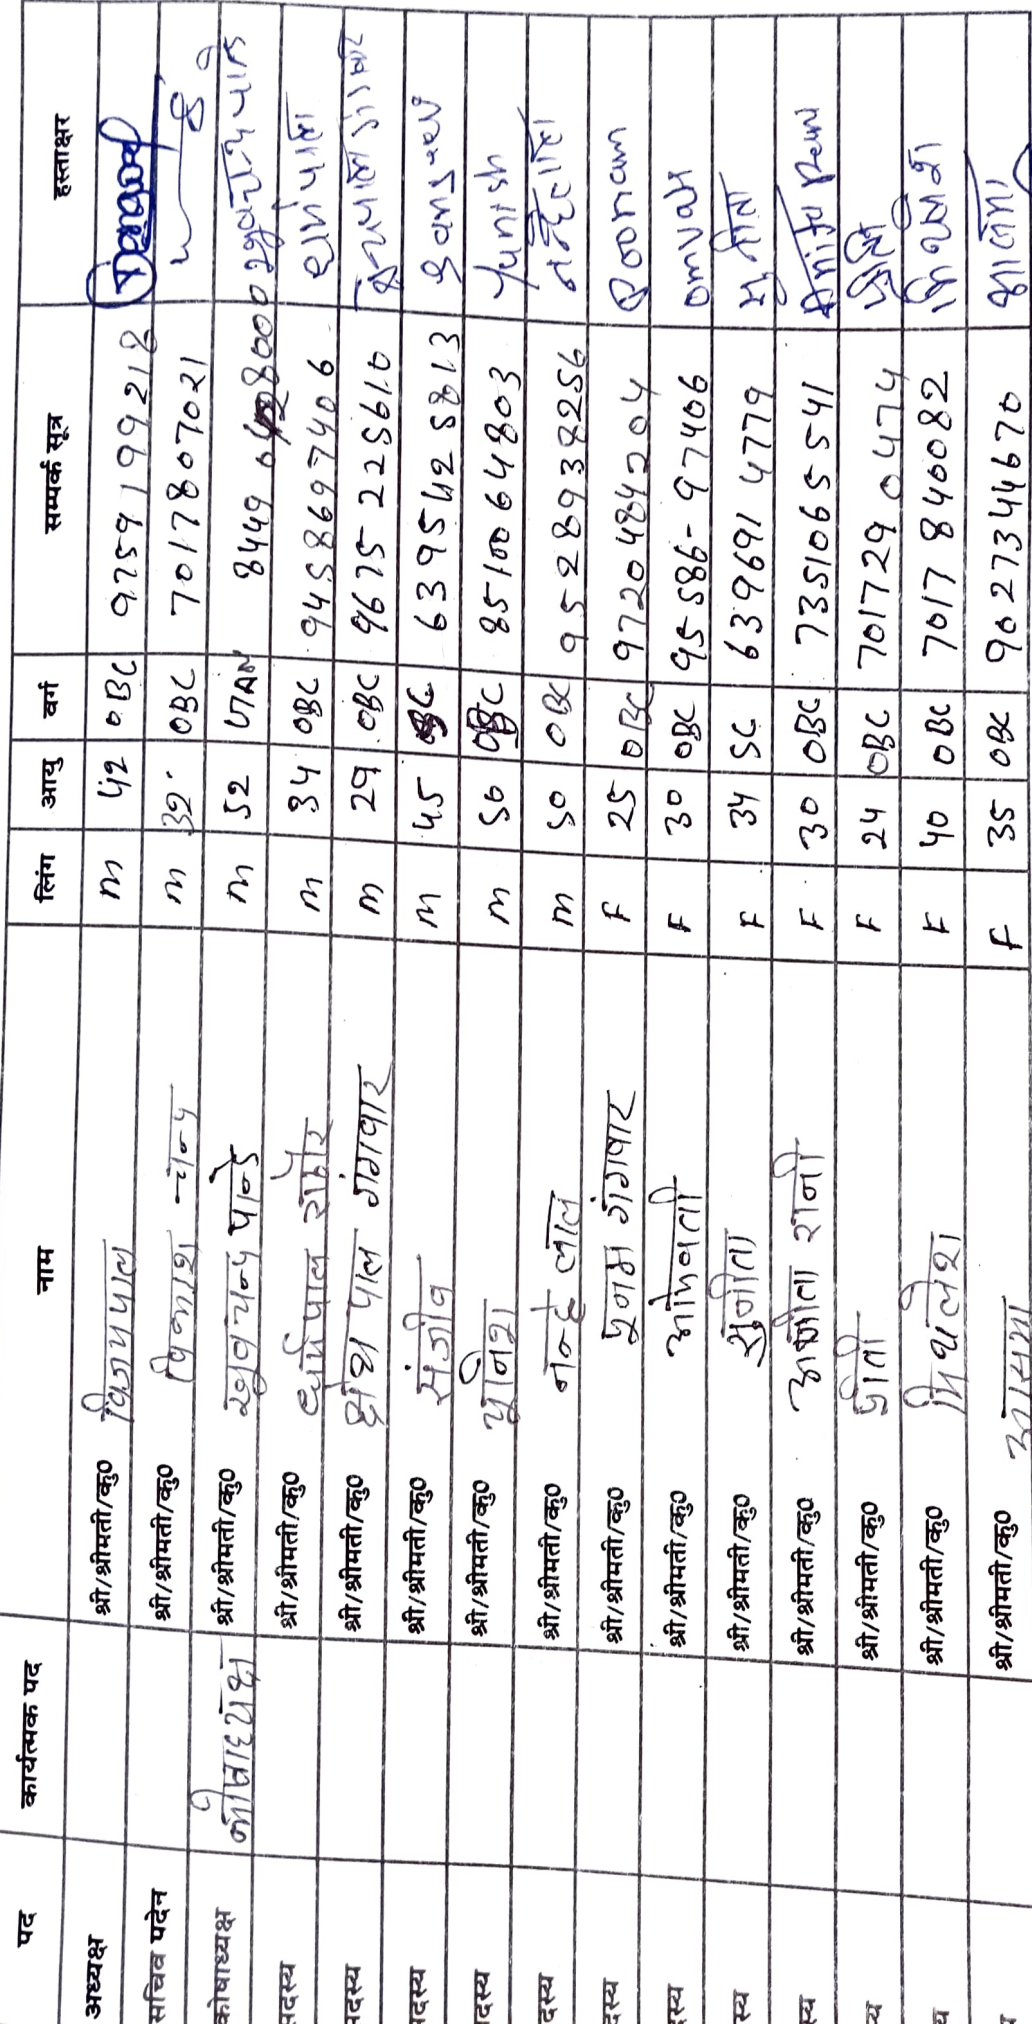 पद कार्यत्मक पद नाम लिंग आयु वर्ग सम्पर्क सूत्र हस्ताक्षर
अध्यक्ष श्री/श्रीमती/कु0 विजयपाल M 42 OBC 9759199218
सचिव पदेन श्री/श्रीमती/कु0 विकाश चन्द M 32 OBC 7017807021
कोषाध्यक्ष कोषाध्यक्ष श्री/श्रीमती/कु0 खुबचन्द पान्डे M 52 8449
सदस्य श्री/श्रीमती/कु0 धर्मपाल राठौर M 34 OBC 9458697406 धर्मपाल
सदस्य श्री/श्रीमती/कु0 पाल गंगवार M 29 OBC 9675225610
दस्य श्री/श्रीमती/कु0 संजीव M 45 6395425813
दस्य श्री/श्रीमती/कु0 यूनिश M 50 OBC 8510064803 Yunish
दस्य श्री/श्रीमती/कु0 नन्हे लाल M 50 OBC 9528938256
दस्य श्री/श्रीमती/कु0 पूनम गंगवार F 25 OBC 9720484204 Poonam
स्य श्री/श्रीमती/कु0 ओमवती F 30 OBC 95586-97406 omvati
स्य श्री/श्रीमती/कु0 सुनीता F 34 SC 6396914779 सुनीता
स्य श्री/श्रीमती/कु0 अनीता रानी F 30 OBC 7351065541 Anita Rani
य श्री/श्रीमती/कु0 प्रीती F 24 OBC 7017290474 प्रीती
य श्री/श्रीमती/कु0 मिथलेश F 40 OBC 7017840082
श्री/श्रीमती/कु0 F 35 OBC 9027344670